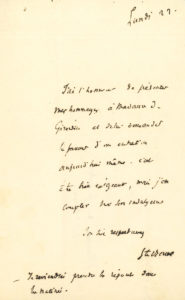 Lundi 22.
J'ai l'honneur de présenter
mes hommages à Madame de
Girardin et de lui demander
la faveur d'un entretien
aujourd'hui même. c'est
être bien exigeant, mais j'ose
compter sur son indulgence
Son bien respectueux
Je reviendrai prendre la réponse dans
la matinée.